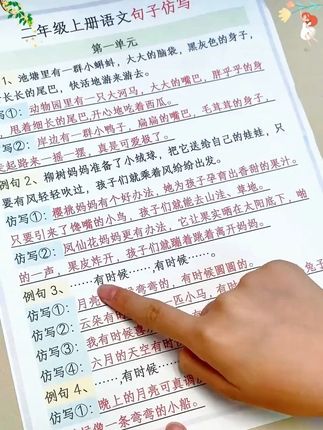 二年级上册语文句子仿写
第一单元
1、池塘里有一群小蝌蚪，大大的脑袋，黑灰色的身子，
长长的尾巴，快活地游来游去。
仿写①：动物园里有一只大河马，大大的嘴巴，胖乎乎的身
，甩着细长的尾巴，开心地吃着西瓜。
仿写②：岸边有一群小鸭子，扁扁的嘴巴，毛茸茸的身子，
走起路来一摇一摆，真是可爱极了。
例句2、柳树妈妈准备了小绒球，把它送给自己的娃娃，只
要有风轻轻吹过，孩子们就乘着风纷纷出发。
仿写①：樱桃妈妈有个好办法，她为孩子穿育出香甜的果汁。
只要引来了馋嘴的小鸟，孩子们就能去山洼、草地。
仿写②：凤仙花妈妈更有办法，它让果实晒在太阳底下，啪
的一声，果皮炸开，孩子们就蹦着跳着离开妈妈。
例句3、……有时候……，有时候……。
仿写①：月亮 弯弯的，有时候圆圆的。
仿写②：云朵有 一匹小马，有时
仿写③：我有时候喜
仿写④：六月的天空有时
例句4、……，有时候
仿写①：晚上的月亮可真调
好像一条弯弯的小船。